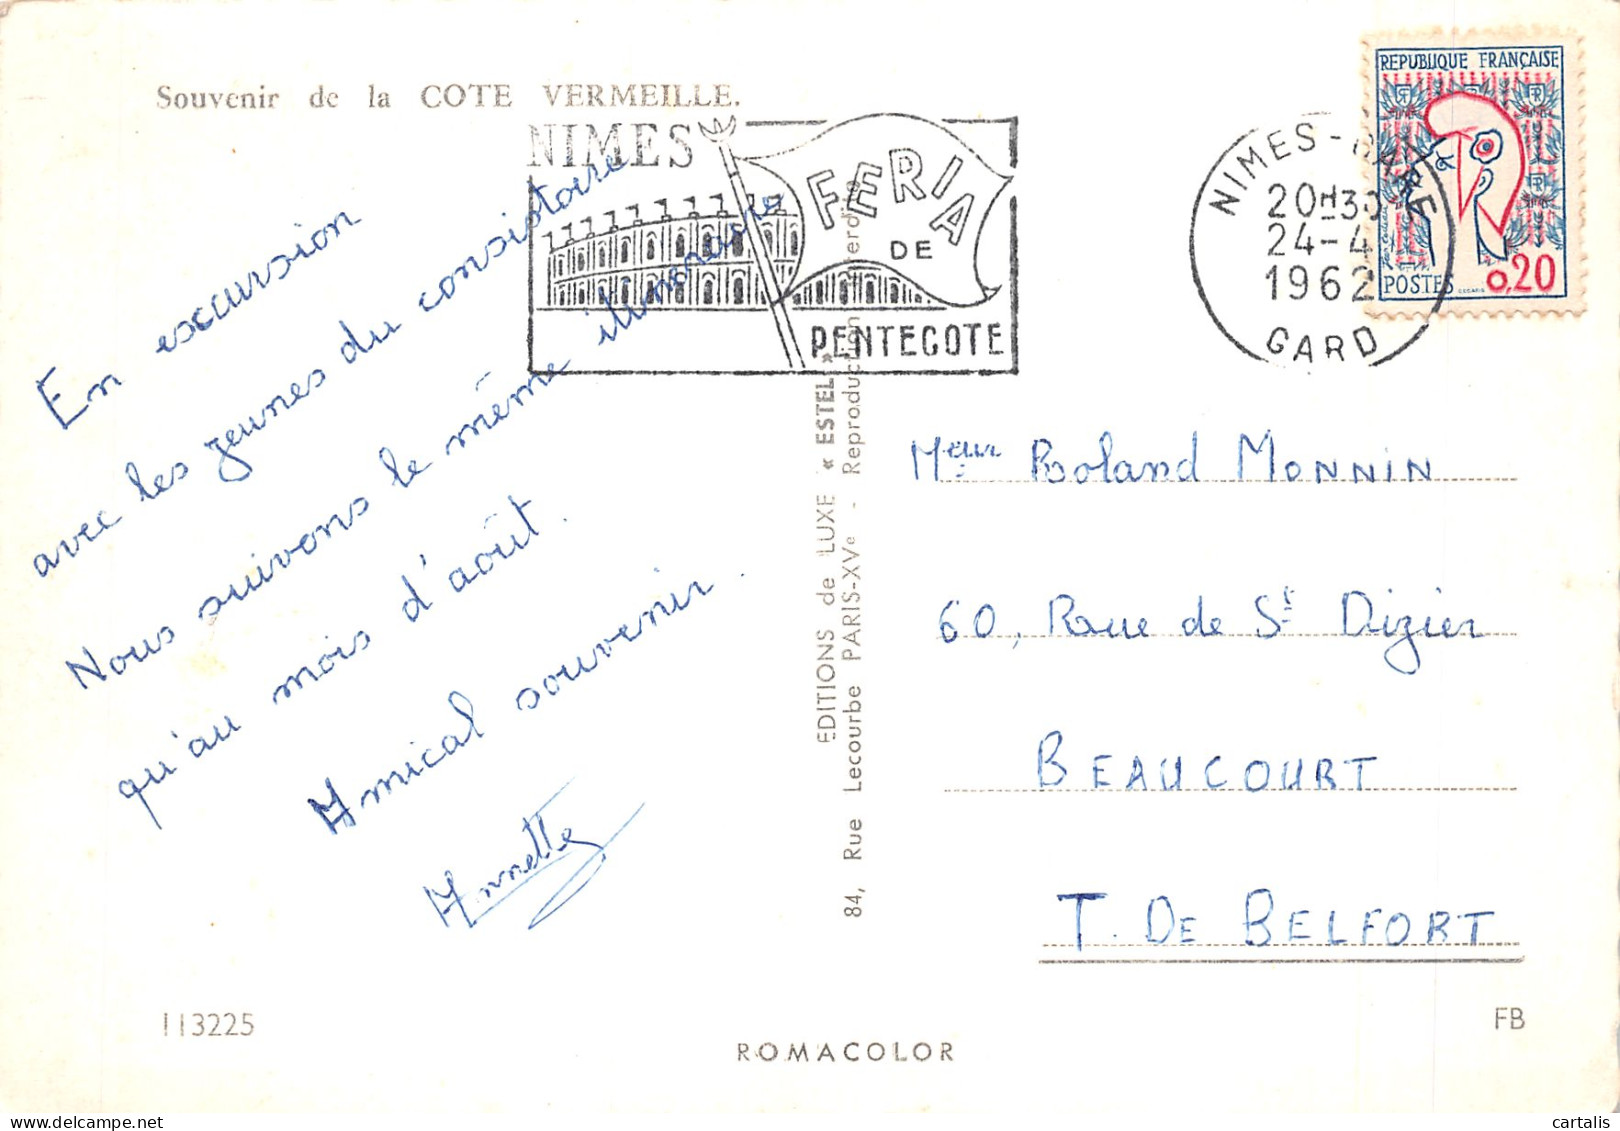 Souvenir de la COTE VERMEILLE.
NIMES
FERIA
DE
PENTECOTE
NIMES-GARE
20H30
24-4
1962
GARD
REPUBLIQUE FRANÇAISE
POSTES
0,20
En excursion
avec les jeunes du consistoire
Nous suivons le même itinéraire
qu'au mois d'août.
Amical souvenir.
Annette
EDITIONS de LUXE « ESTEL »
84, Rue Lecourbe PARIS-XVe - Reproduction interdite
Meur Roland MONNIN
60, Rue de St Dizier
BEAUCOURT
T. DE BELFORT
113225
FB
ROMACOLOR
cartalis
www.delcampe.net